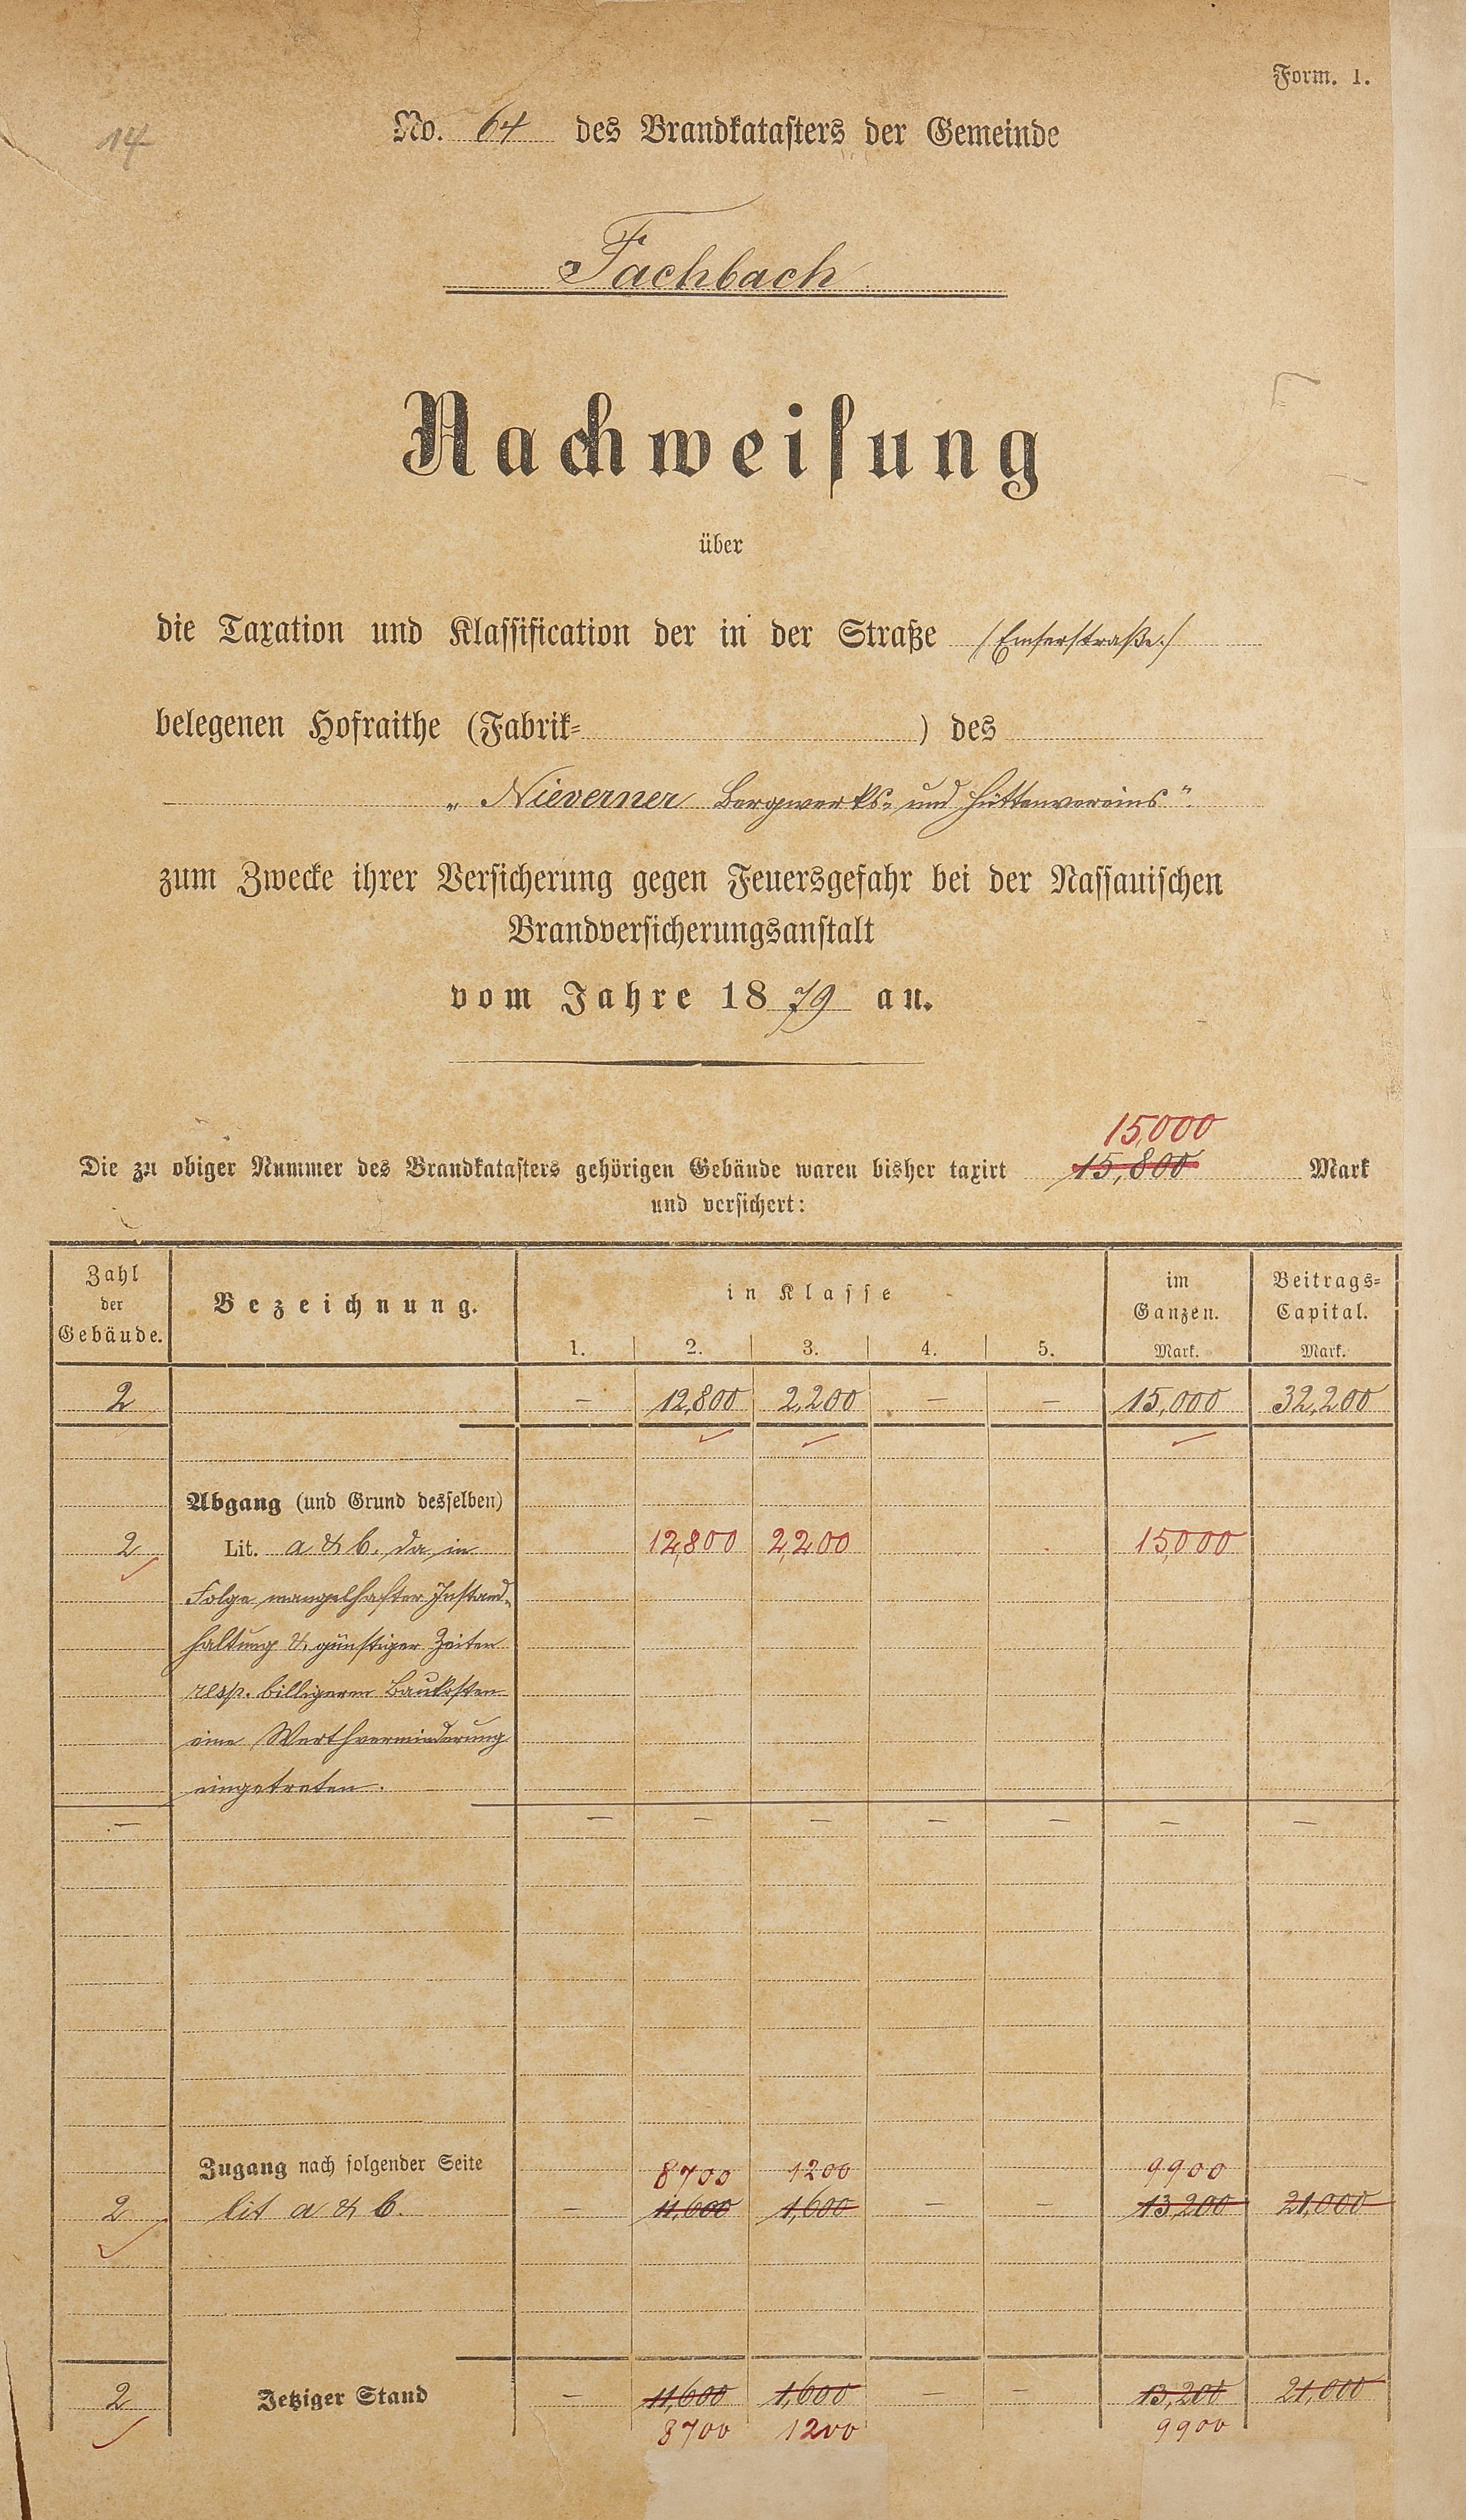 Form. 1.
14
No. 64 des Brandkatasters der Gemeinde
Fachbach
Nachweisung
über
die Taxation und Klassification der in der Straße /Emserstraße:/
belegenen Hofraithe (Fabrik= ) des
„Nieverner Bergwerks- und Hüttenvereins".
zum Zwecke ihrer Versicherung gegen Feuersgefahr bei der Nassauischen
Brandversicherungsanstalt
vom Jahre 1879 an.
15,000
Die zu obiger Nummer des Brandkatasters gehörigen Gebäude waren bisher taxirt 15,800 Mark
und versichert:
Zahl der Gebäude. Bezeichnung. in Klasse im Ganzen. Beitrags=Capital.
1. 2. 3. 4. 5. Mark. Mark.
2 – 12,800 2,200 – – 15,000 32,200
Abgang (und Grund desselben)
2 Lit. a & b. da in 12,800 2,200 15,000
Folge mangelhafter Instand-
haltung & günstiger Zeiten
resp. billigerer Baukosten
eine Werthverminderung
eingetreten.
– – – – – – – –
Zugang nach folgender Seite 8700 1200 9900
2 lit a & b. – 11,600 1,600 – – 13,200 21,000
2 Jetziger Stand – 11,600 1,600 – – 13,200 21,000
8700 1200 9900